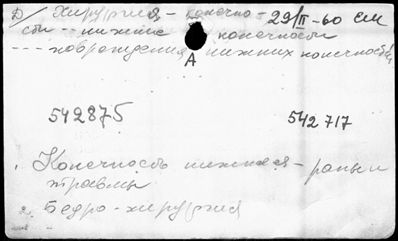 D/ Хирургия - конечно- 29/II-60 см
сти -- нижние конечности
--- повреждения нижних конечностей
А
542875 542717
1. Конечность нижняя - раны и
травмы
2. Бедро - хирургия